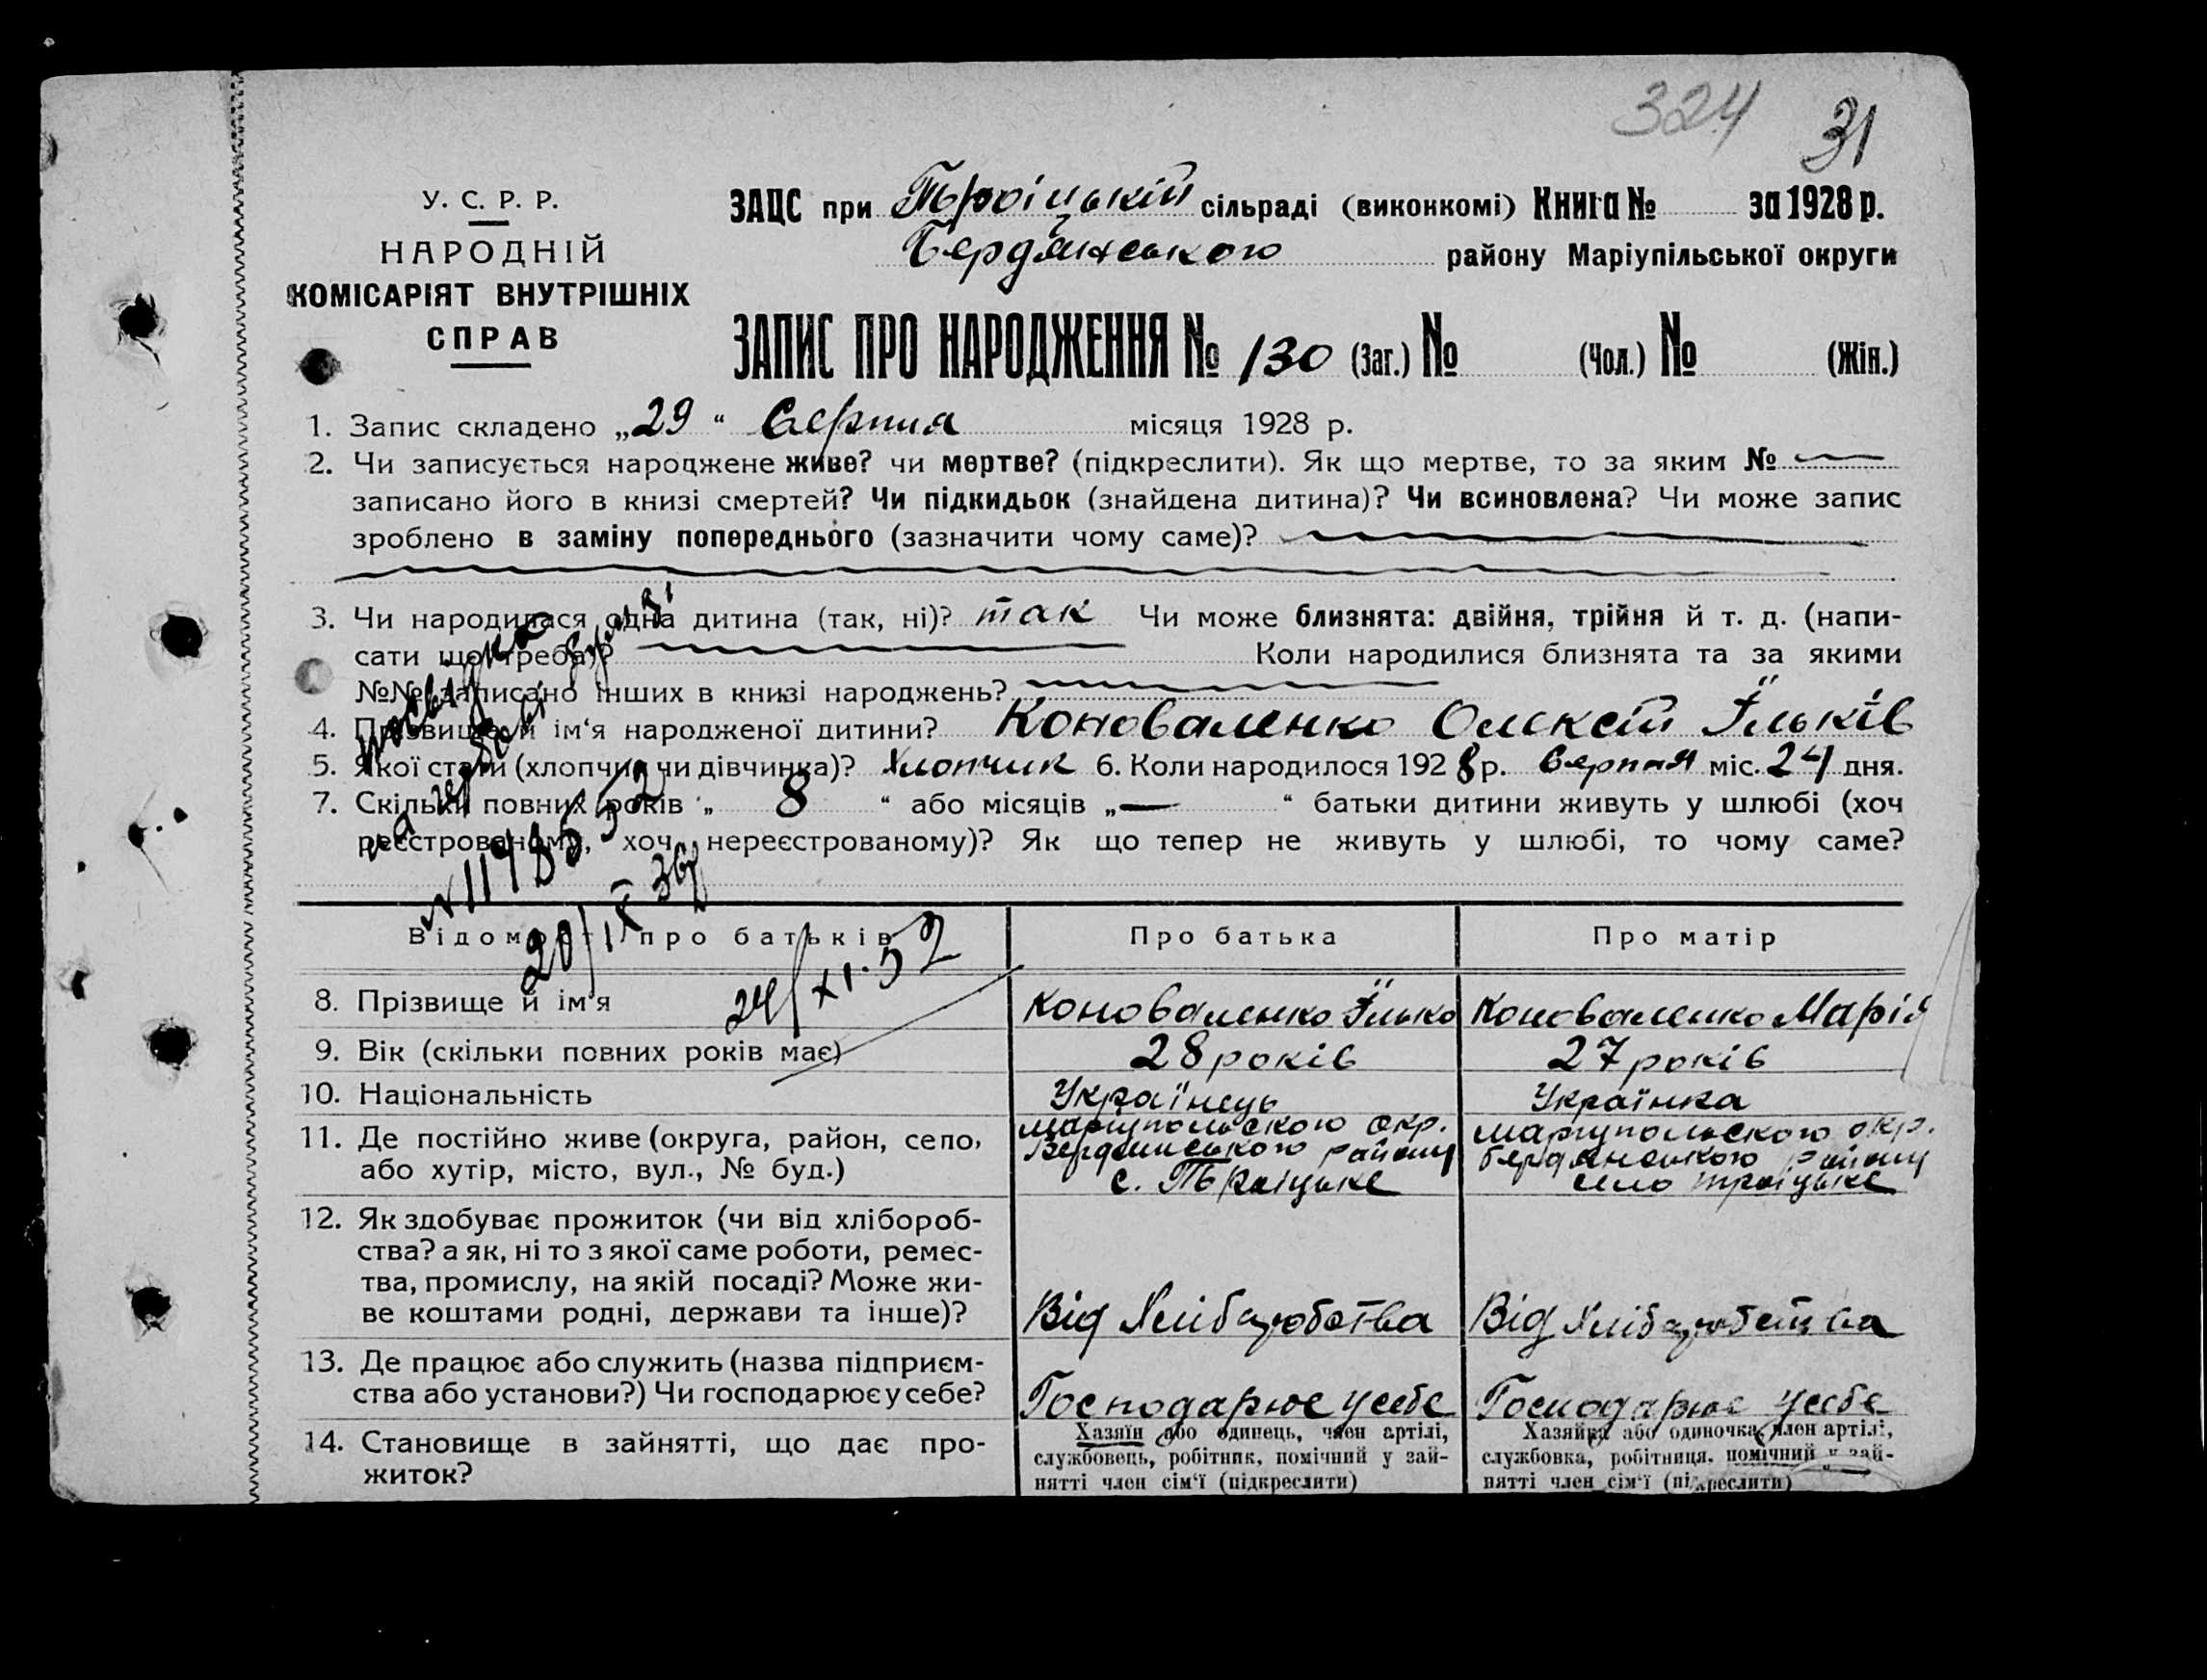 324
31
У. С. Р. Р.
НАРОДНІЙ
КОМІСАРІЯТ ВНУТРІШНІХ
СПРАВ
ЗАЦС при Троїцькій сільраді (виконкомі) Книга № за 1928 р.
Бердянського району Маріупільської округи
ЗАПИС ПРО НАРОДЖЕННЯ № 130 (Заг.) № (Чол.) № (Жін.)
1. Запис складено „29“ Серпня місяця 1928 р.
2. Чи записується народжене живе? чи мертве? (підкреслити). Як що мертве, то за яким №
записано його в книзі смертей? Чи підкидьок (знайдена дитина)? Чи всиновлена? Чи може запис
зроблено в заміну попереднього (зазначити чому саме)?
3. Чи народилася одна дитина (так, ні)? так Чи може близнята: двійня, трійня й т. д. (напи-
сати що треба)? Коли народилися близнята та за якими
№№ записано інших в книзі народжень?
4. Прізвище й ім‘я народженої дитини? Коноваленко Олексій Їльків
5. Якої стати (хлопчик чи дівчинка)? Хлопчик 6. Коли народилося 1928 р. Серпня міс. 24 дня.
7. Скільки повних років „ 8 “ або місяців „—“ батьки дитини живуть у шлюбі (хоч
реєстрованому, хоч нереєстрованому)? Як що тепер не живуть у шлюбі, то чому саме?
20/IX 36р
24/XI-52
Відомості про батьків Про батька Про матір
8. Прізвище й ім‘я Коноваленко Їлько Коноваленко Марія
9. Вік (скільки повних років має) 28 років 27 років
10. Національність Українець Українка
11. Де постійно живе (округа, район, село,
або хутір, місто, вул., № буд.)
маріупольского окр.
Бердянського району
с. Троіцьке
маріупольского окр.
бердянського району
село троіцьке
12. Як здобуває прожиток (чи від хлібороб-
ства? а як, ні то з якої саме роботи, ремес-
тва, промислу, на якій посаді? Може жи-
ве коштами родні, держави та інше)?
Від Від
13. Де працює або служить (назва підприєм-
ства або установи?) Чи господарює у себе?
Господарює усебе Господарює усебе
14. Становище в зайнятті, що дає про-
житок?
Хазяїн або одинець, член артілі,
службовець, робітник, помічний у зай-
нятті член сім‘ї (підкреслити)
Хазяйка або одиночка, член артілі,
службовка, робітниця, помічний у зай-
нятті член сім‘ї (підкреслити)